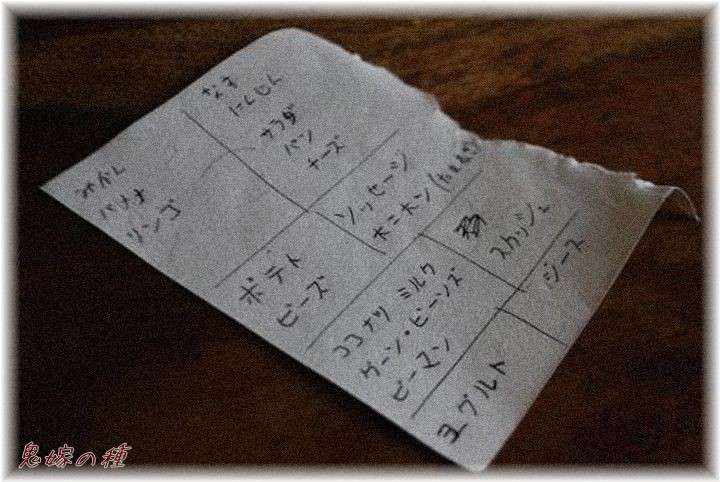 みかん
バナナ
リンゴ
なす
にんじん
サラダ
パン
チーズ
ポテト
ビーズ
ソッセージ
ホニホン
ココナツ ミルク
グーン・ビーンズ
ピーマン
スカッシュ
ジース
ヨグルト
鬼嫁の種